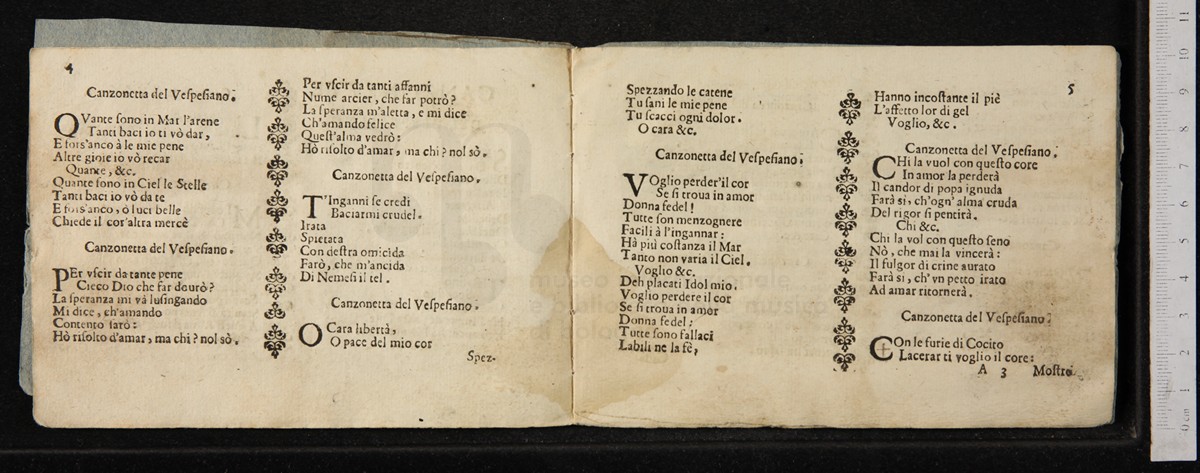 4
Canzonetta del Vespesiano.
QVante sono in Mar l'arene
Tanti baci io ti vò dar,
E fors'anco à le mie pene
Altre gioie io vò recar
Quante, &c.
Quante sono in Ciel le Stelle
Tanti baci io vò da te
E fors'anco, ò luci belle
Chiede il cor'altra mercè
Canzonetta del Vespesiano.
PEr vscir da tante pene
Cieco Dio che far dourò?
La speranza mi và lusingando
Mi dice, ch'amando
Contento sarò:
Hò risolto d'amar, ma chi? nol sò.
Per vscir da tanti affanni
Nume arcier, che far potrò?
La speranza m'aletta, e mi dice
Ch'amando felice
Quest'alma vedrò:
Hò risolto d'amar, ma chi? nol sò.
Canzonetta del Vespesiano.
T'Inganni se credi
Baciarmi crudel.
Irata
Spietata
Con destra omicida
Farò, che m'ancida
Di Nemesi il tel.
Canzonetta del Vespesiano.
O Cara libertà,
O pace del mio cor
Spez-
Spezzando le catene
Tu sani le mie pene
Tu scacci ogni dolor.
O cara &c.
Canzonetta del Vespesiano.
VOglio perder'il cor
Se si troua in amor
Donna fedel!
Tutte son menzognere
Facili à l'ingannar:
Hà più costanza il Mar
Tanto non varia il Ciel.
Voglio &c.
Deh placati Idol mio.
Voglio perdere il cor
Se si troua in amor
Donna fedel;
Tutte sono fallaci
Labili ne la fè,
5
Hanno incostante il piè
L'affetto lor di gel
Voglio, &c.
Canzonetta del Vespesiano.
CHi la vuol con questo core
In amor la perderà
Il candor di popa ignuda
Farà si, ch'ogn'alma cruda
Del rigor si pentirà.
Chi &c.
Chi la vol con questo seno
Nò, che mai la vincerà:
Il fulgor di crine aurato
Farà si, ch'vn petto irato
Ad amar ritornerà.
Canzonetta del Vespesiano.
COn le furie di Cocito
Lacerar ti voglio il core:
A 3 Mostro
museo
musica
0 cm 1 2 3 4 5 6 7 8 9 10 11